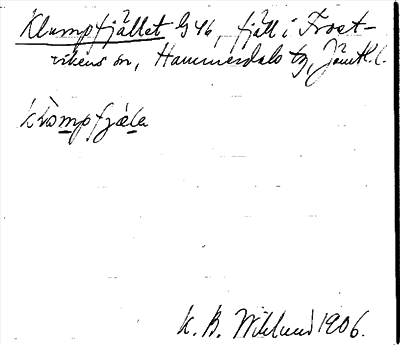 Klumpfjället G 46, fjäll i Frost-
vikens sn, Hammerdals tg, Jämtl. l.
klompfjäla
K. B. Wiklund 1906.